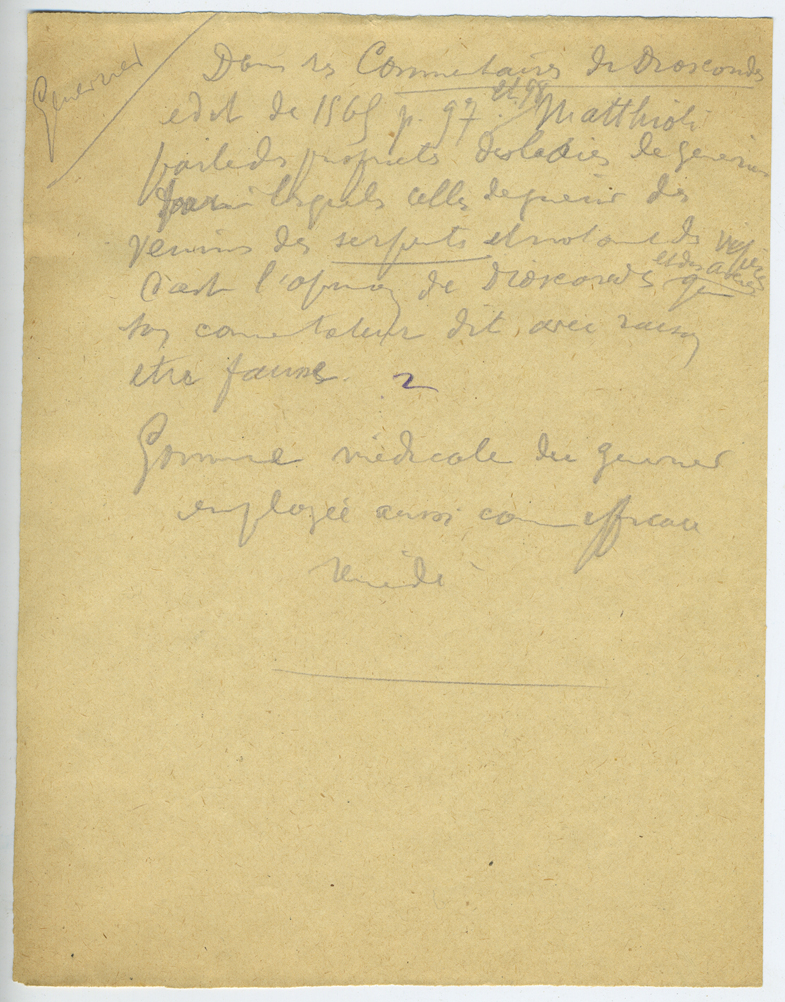 Genevrier
Dans ses Commentaires de Dioscorides
edit de 1565 p. 97 et 98 Matthioli
parle des propriétés des baies de genevrier
parmi lesquels celles de guérir des
venins des serpents et notamment des vipères
C'est l'opinion de Dioscoride que
son commentateur dit avec raison
etre fausse. 2
Gomme médicale du genevrier
employée aussi com efficace
remède